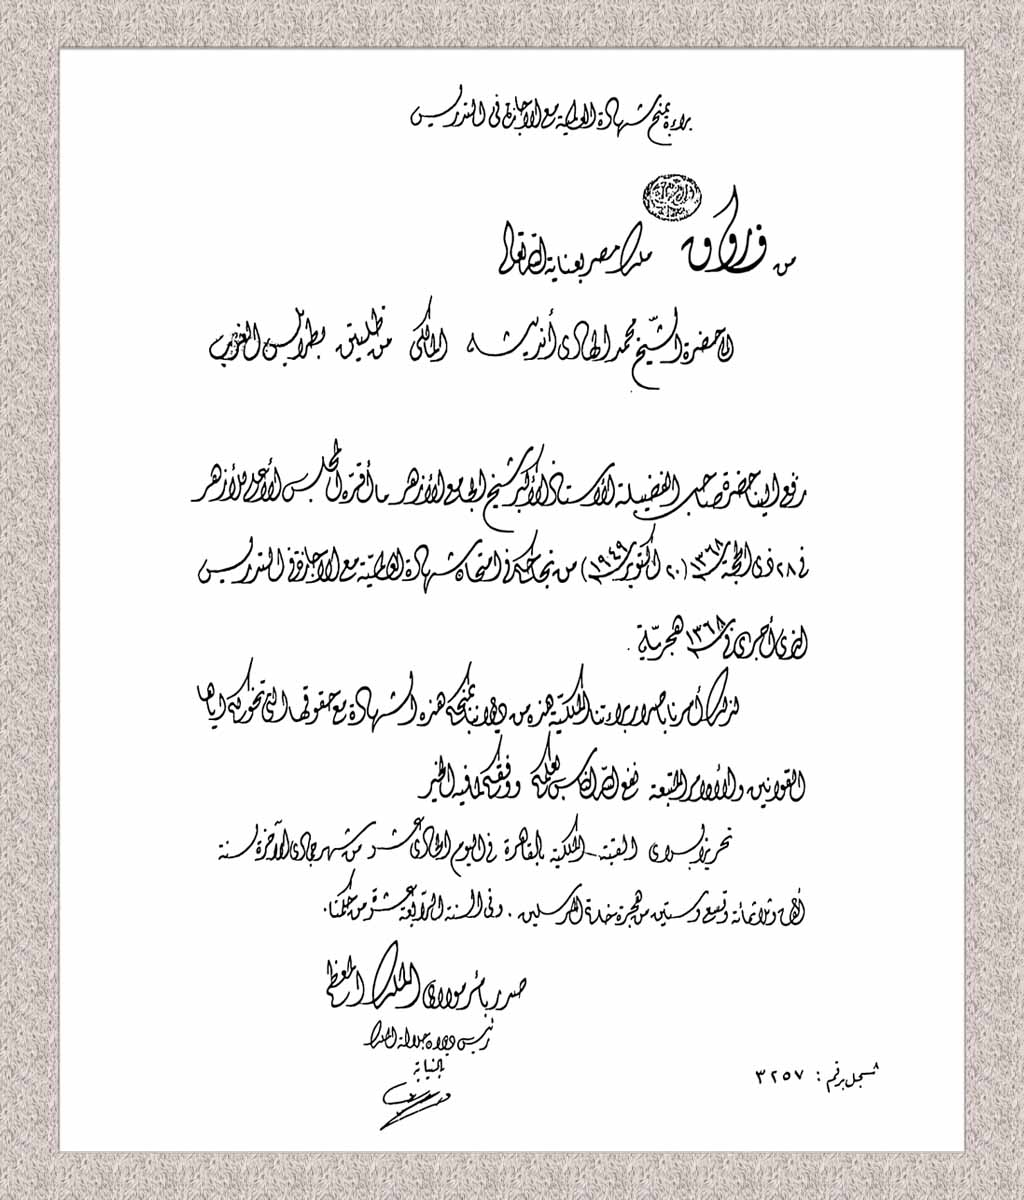 براءة بمنح شهادة العالمية مع الإجازة في التدريس
من فاروق ملك مصر بعناية الله تعالى
إلى حضرة الشيخ محمد الهادي أنديشه المالكي من ظليتن بطرابلس الغرب
رفع إلينا حضرة صاحب الفضيلة الأستاذ الأكبر شيخ الجامع الأزهر ما أقره المجلس الأعلى للأزهر
في ٢٨ ذي الحجة ١٣٦٨ (٢٠ أكتوبر ١٩٤٩) من نجاحكم في امتحان شهادة العالمية مع الإجازة في التدريس
الذي أجري في ١٣٦٨ هجرية .
لذلك أمرنا بإصدار براءتنا الملكية هذه من ديواننا بمنحكم هذه الشهادة مع حقوقها التي تخولكم إياها
القوانين والأوامر المتبعة نفع الله الناس بعلمكم ووفقكم لما فيه الخير
تحريرا بسراي القبة الملكية بالقاهرة في اليوم الحادي عشر من شهر جمادى الآخرة لسنة
ألف وثلاثمائة وتسع وستين من هجرة خاتم المرسلين . وفي السنة الرابعة عشرة من حكمنا .
صدر بأمر مولاي الملك المعظم
رئيس ديوان جلالة الملك
بالنيابة
سجل برقم : ٣٢٥٧